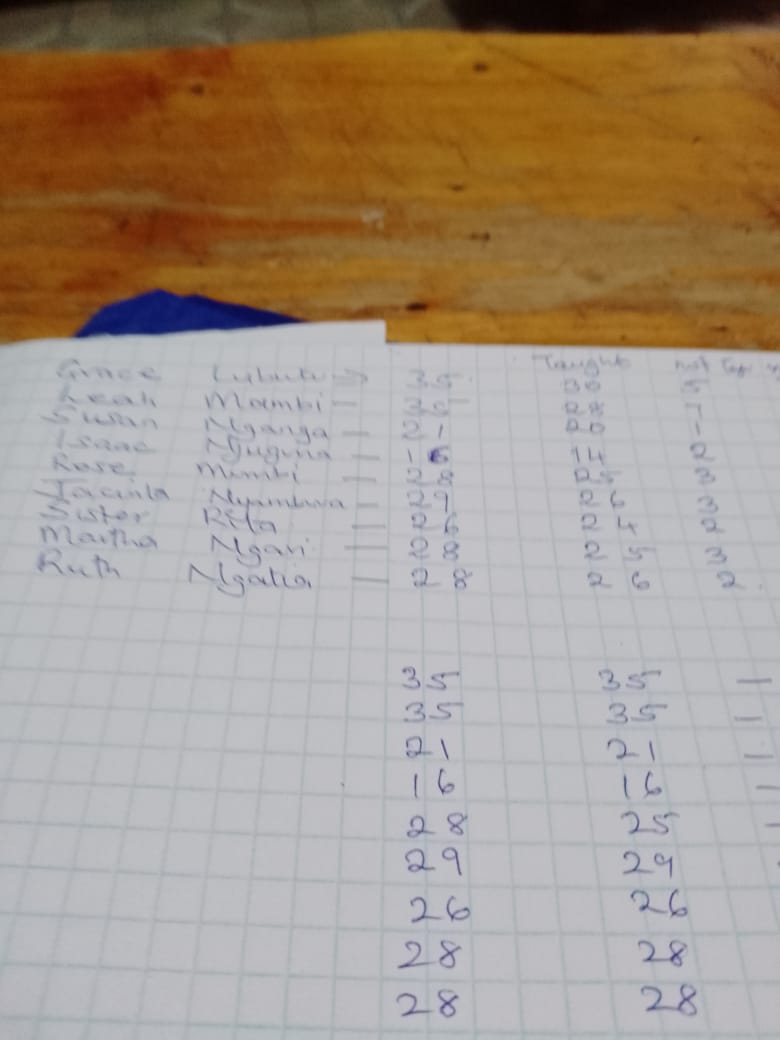 Taught
Grace 35 30 5
Leah Mambi —
Susan Nganga — 21
Isaac Njuguna — 16 14 2
Rose Mumbi — 28 25 3
Jacinta — 29 26 3
Sister Rita — 26 24 2
Martha Ngari — 28 25 3
Ruth Ngatia — 28 26 2
35 35 —
35 35 —
21 21 —
16 16 —
28 25 —
29 29
26 26
28 28
28 28